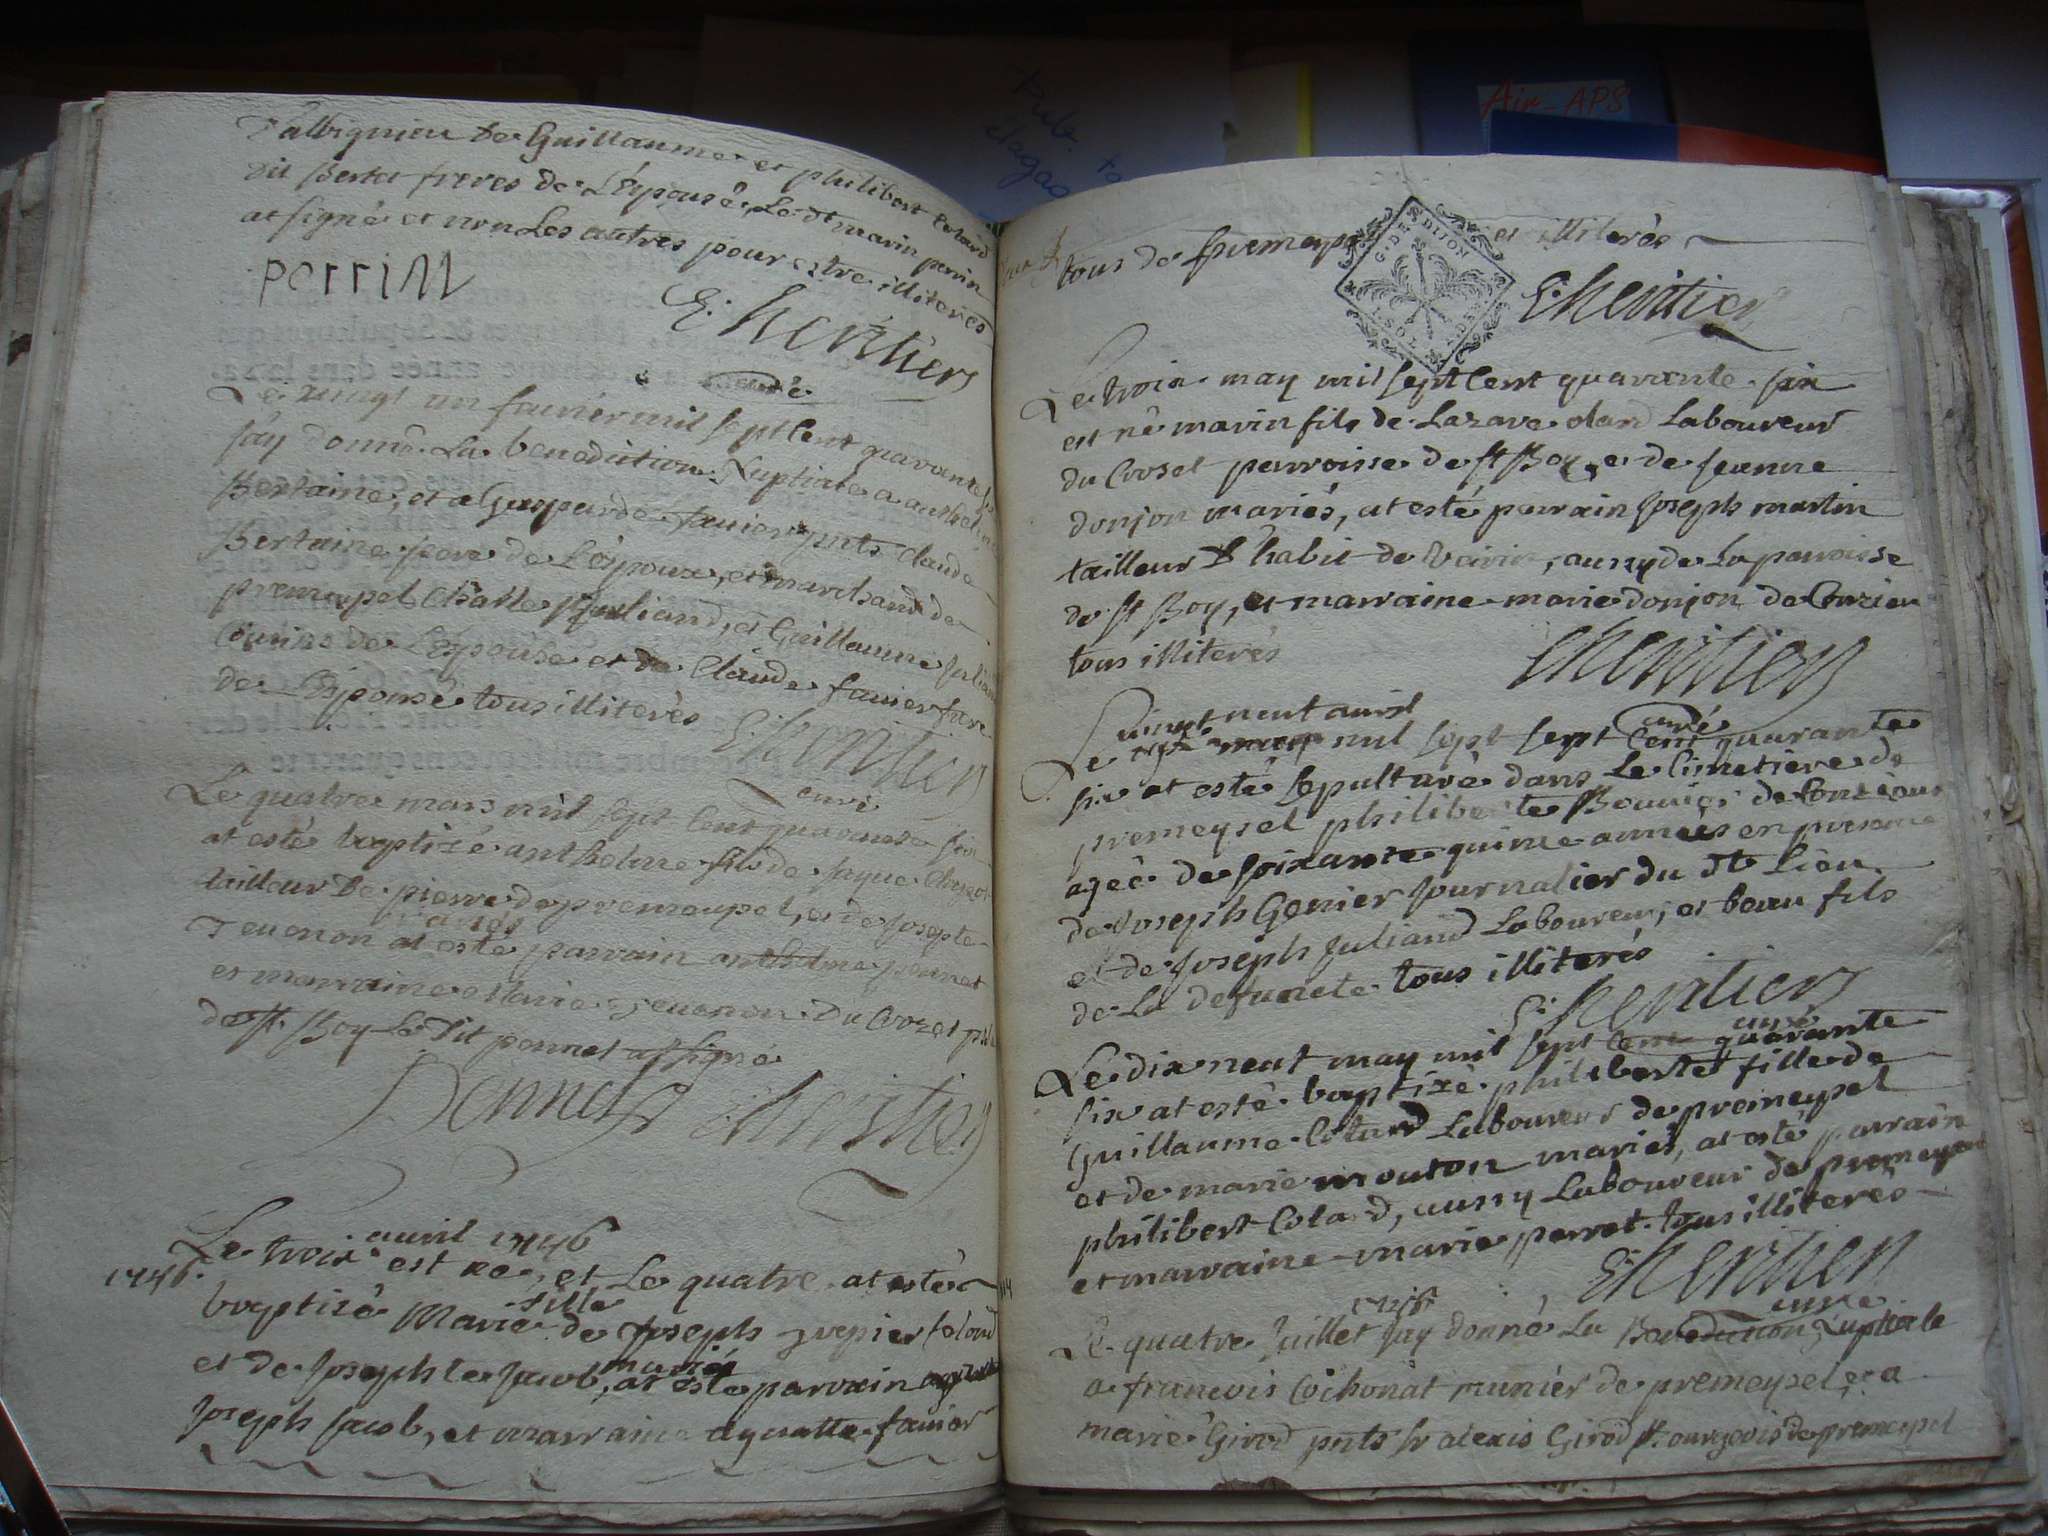 d'albignieu de Guillaume et philibert Cotard
dit Bertet freres de L'Epousé, Le dt marin perrin
at signé et non Les autres pour estre illiterés
perrin
E: heritier
curé
Le vingt un fauriér mil sept Cent quarante six
J'ay donné La benediction Nuptiale a anthelme
Bertaine, et a Gasparde fauier pnts Claude
Bertaine pere de L'époux, et marchand de
premeysel, Juliand, et Guillaume Juliand
Cousins de L'Epouse et de Claude fauier frere
de L'Epouse tous illiterés E: heritier
curé
Le quatre mars mil sept Cent quarante six
at esté baptizé anthelme fils de Jaque
tailleur De pierre de premeysel, et de Josepte
Teuenon mariés at esté parrain anthelme ponnet
et marraine Marie Teuenon Du Crozet
de st. Boy Le dit ponnet at signé
Ponnet E heritier
Le trois auril 1746
1746. est né, et Le quatre at esté
baptizé Marie fille de Joseph grepier
et de Josephte Jacob, mariés at esté parrain
Joseph Jacob, et marraine fauier
tous de premeysel et illiterés
G. DE DIJON
SOL
E heritier
Le trois may mil sept Cent quarante six
est né marin fils de Lazare oland Laboureur
du Croset parroisse de st Boy, e de Jeanne
donjon mariés, at esté parrain Joseph martin
tailleur d'habit de Vairin, aussy de La parroisse
de st Boy, et marraine marie donjon de Conzieu
tous illiterés
E heritier
curé
Le vingt neuf auril
may mil sept sept Cent quarante
six at esté Sepulturé dans Le Cimetiere de
premeysel philiberte Bouuier de Conzieu
agée de soixante quinze années en presence
de Joseph Genier Journalier du dt Lieu
et de Joseph Juliand Laboureur, et beau fils
de La defuncte tous illiterés
E: heritier
curé
Le dix neuf may mil sept Cent quarante
six at esté baptizé philiberte fille de
Guillaume Cotard Laboureur de premeysel
et de marie mouton mariés, at esté parrain
philibert Cotard, aussy Laboureur de premeysel
et marraine marie perret tous illiterés
E: heritier
curé
1746
Le quatre Juillet Jay donné La Benediction Nuptiale
a francois Cochonat munier de premeysel, et a
marie Girod pnts sr alexis Girod Bourgeois de premeysel
Air-APS
Pub.